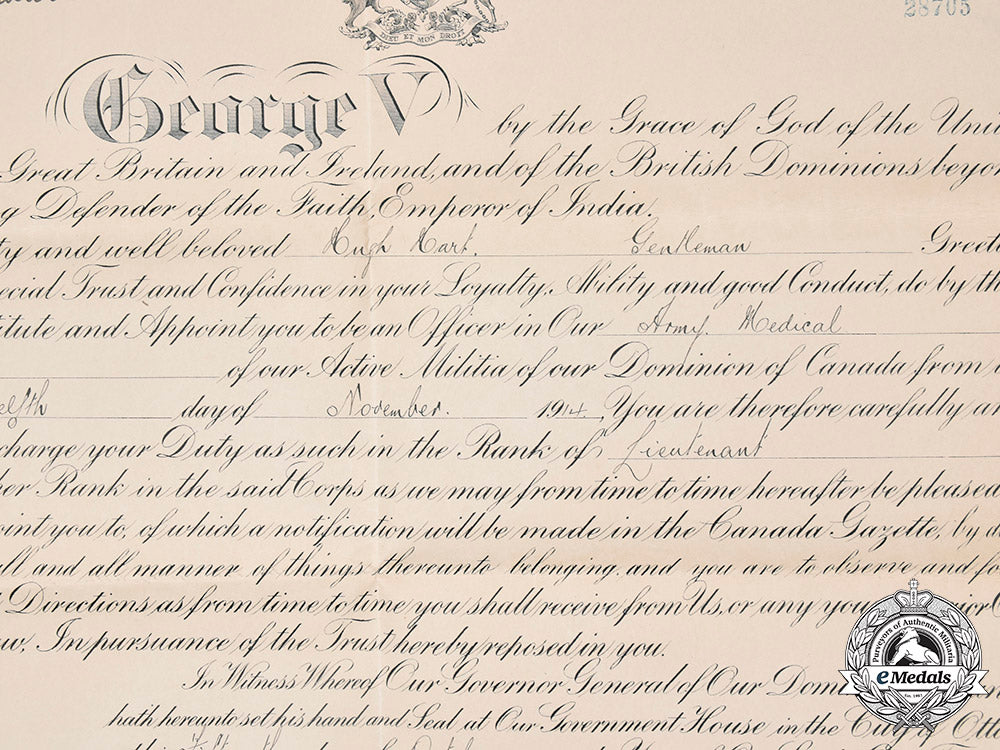 28705
DIEU ET MON DROIT
George V by the Grace of God of the Uni
Great Britain and Ireland, and of the British Dominions beyon
g Defender of the Faith, Emperor of India.
ty and well beloved Hugh Hart. Gentleman Greeti
ecial Trust and Confidence in your Loyalty, Ability and good Conduct, do by th
titute and Appoint you to be an Officer in Our Army Medical
of our Active Militia of our Dominion of Canada from
elfth day of November. 1914. You are therefore carefully a
charge your Duty as such in the Rank of Lieutenant
her Rank in the said Corps as we may from time to time hereafter be pleased
oint you to, of which a notification will be made in the Canada Gazette, by a
ll and all manner of things thereunto belonging, and you are to observe and fo
Directions as from time to time you shall receive from Us, or any you
aw. In pursuance of the Trust hereby reposed in you.
In Witness Whereof Our Governor General of Our Dom
hath hereunto set his hand and Seal at Our Government House in the City of Otta
this day of
Purveyors of Authentic Militaria
eMedals